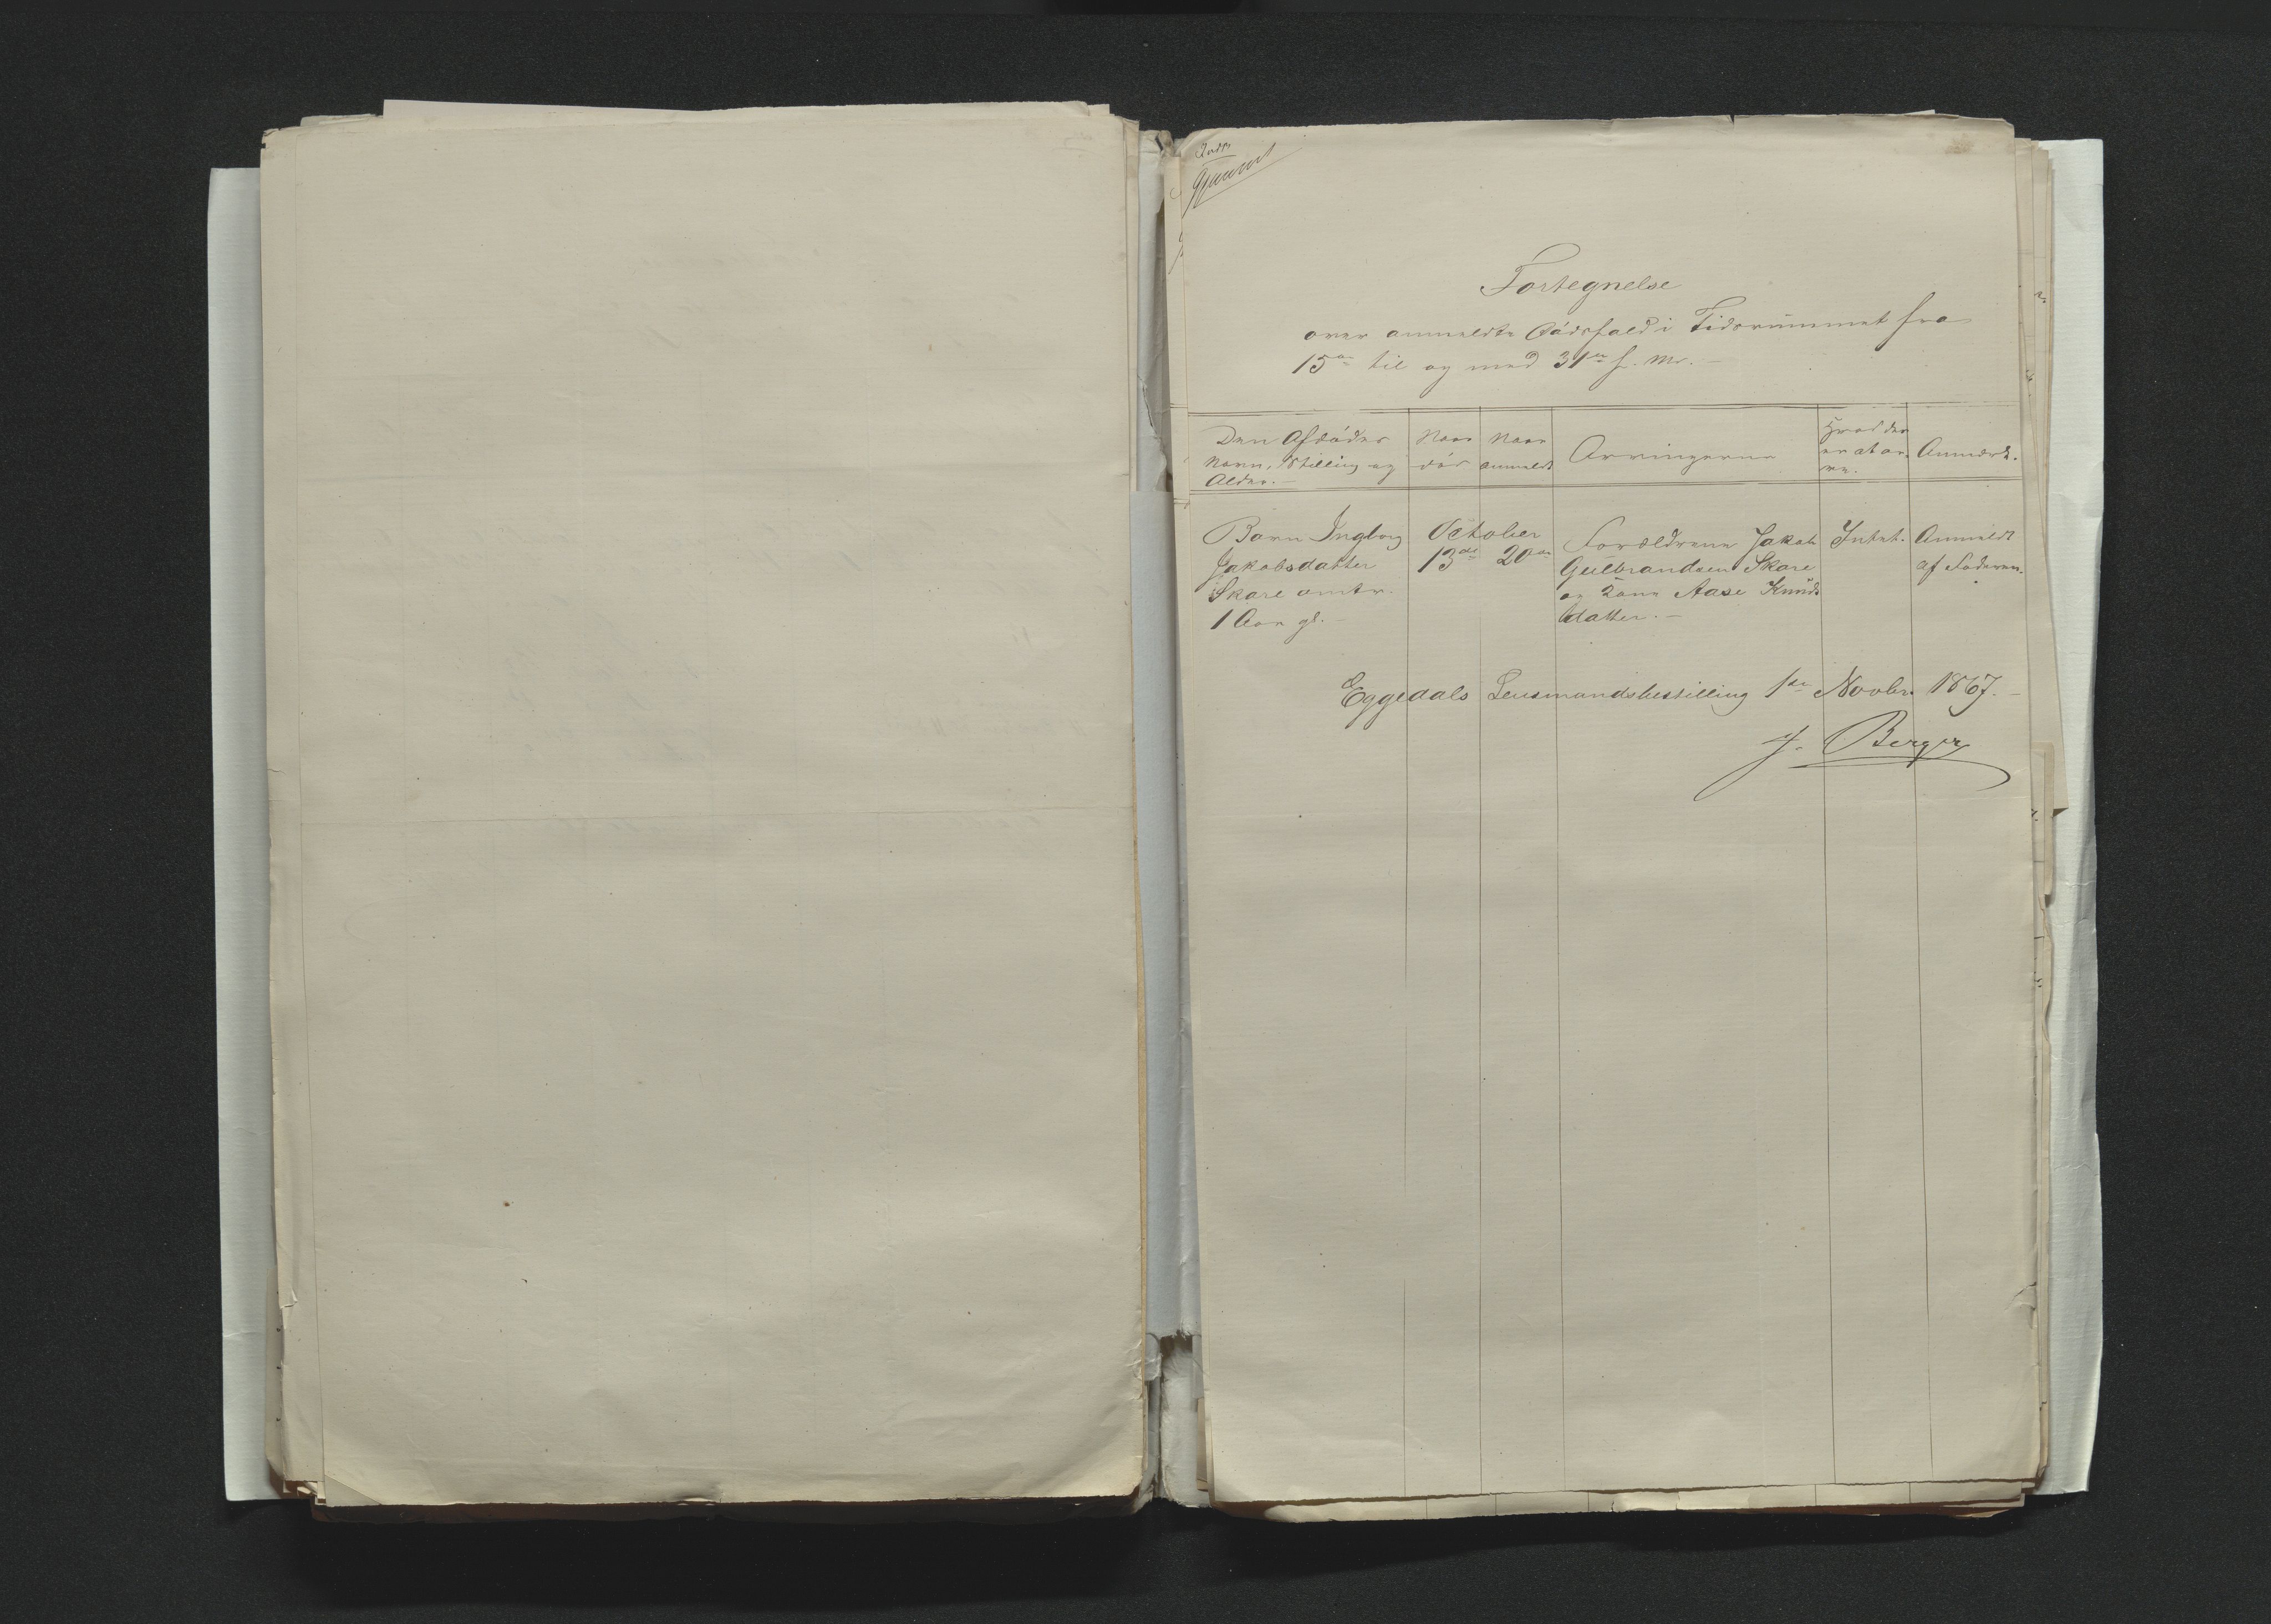 Fortegnelse
over anmeldte Dødsfald i Tidsrummet fra
15de til og med 31te f. M. –
Den Afdødes
Navn, Stilling og
Alder. –
Naar
død
Naar
anmeldt
Arvingerne
Hvad der
er at ar-
ve.
Anmærk.
Barn Ingborg
Jakobsdatter
Skare omtr.
1 Aar gl. –
October
13de 20de
Forældrene Jakob
Gulbrandsen Skare
og Kone Aase Knuds
datter. –
Intet.
Anmeldt
af Faderen.
Eggedals Lensmandsbestilling 1ste Novbr. 1867. –
J. Berger